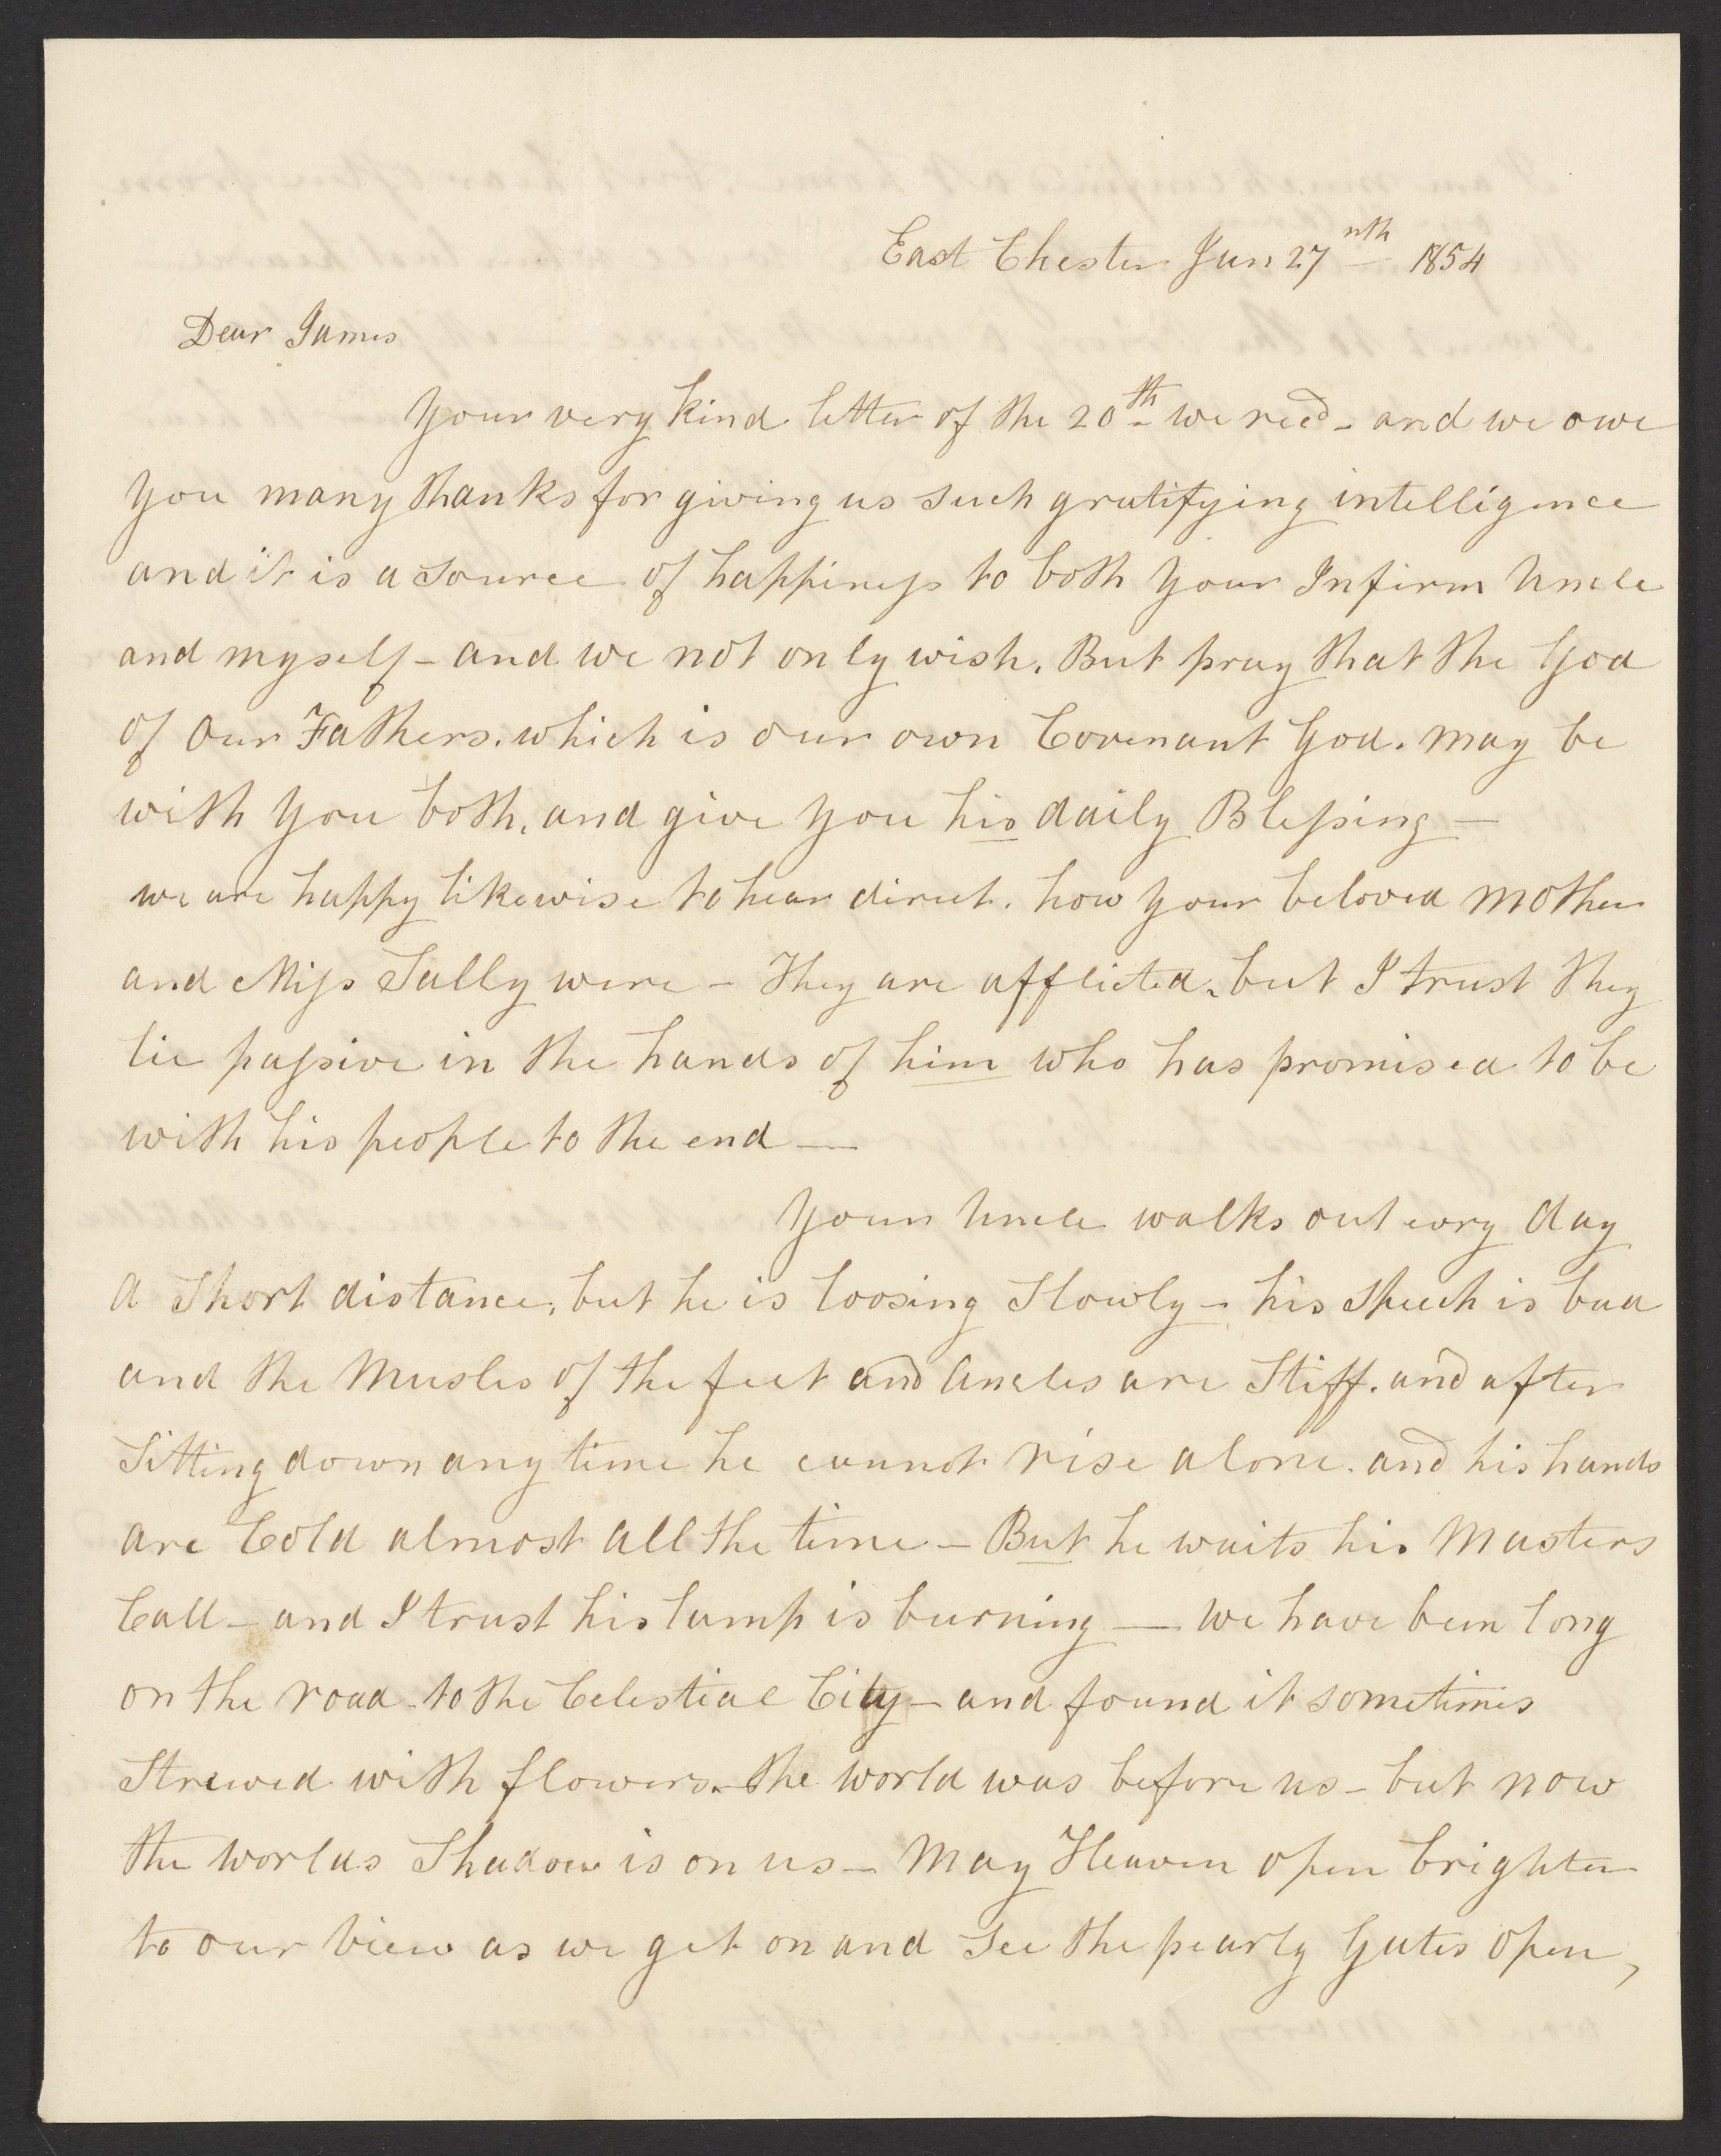 East Chester Jan 27nth 1854
Dear James
Your very kind letter of the 20th we recd - and we owe
you many thanks for giving us such gratifying intelligence
and it is a source of happiness to both your Infirm Uncle
and myself - and we not only wish, But pray that the God
of Our Fathers, which is our own Covenant God, may be
with you both, and give you his daily Blessing -
we are happy likewise to hear direct, how your beloved Mother
and Miss Sally were - They are afflicted, but I trust they
lie passive in the hands of him who has promised to be
with his people to the end -
Your Uncle walks out evry day
a short distance, but he is loosing Slowly - his Speech is bad
and the Musles of the feet and Ancles are Stiff, and after
Sitting down any time he cannot rise alone, and his hands
are Cold almost all the time - But he waits his Masters
Call - and I trust his lamp is burning - we have been long
on the road to the Celestial City - and found it sometimes
Strewed with flowers - the world was before us - but now
the worlds Shadow is on us - May Heaven open brighter
to our view as we get on and see the pearly Gates open,